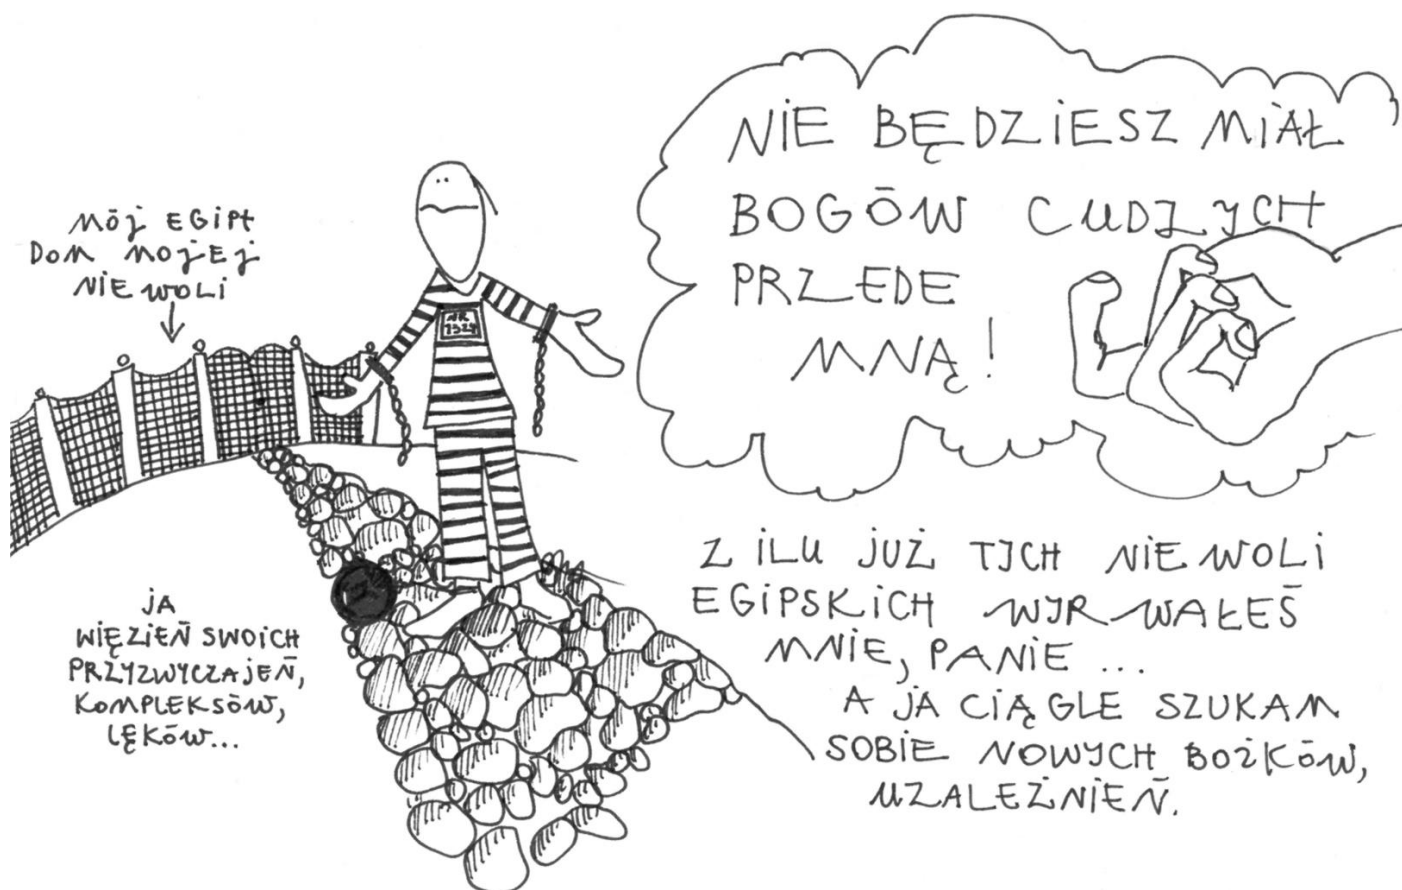 MÓJ EGIPT
DOM MOJEJ
NIEWOLI
NIE BĘDZIESZ MIAŁ
BOGÓW CUDZYCH
PRZEDE
MNĄ!
NR
JA
WIĘZIEŃ SWOICH
PRZYZWYCZAJEŃ,
KOMPLEKSÓW,
LĘKÓW...
Z ILU JUŻ TYCH NIEWOLI
EGIPSKICH WYRWAŁEŚ
MNIE, PANIE ...
A JA CIĄGLE SZUKAM
SOBIE NOWYCH BOŻKÓW,
UZALEŻNIEŃ.